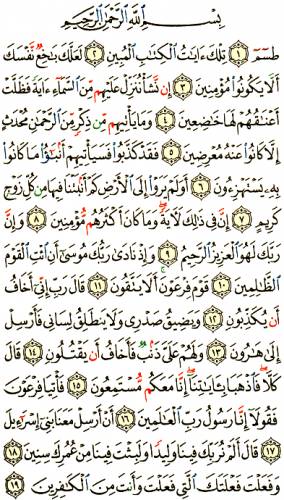 بِسْمِ ٱللَّهِ ٱلرَّحْمَٰنِ ٱلرَّحِيمِ
طسٓمٓ ۝١ تِلْكَ ءَايَٰتُ ٱلْكِتَٰبِ ٱلْمُبِينِ ۝٢ لَعَلَّكَ بَٰخِعٌ نَّفْسَكَ
أَلَّا يَكُونُوا۟ مُؤْمِنِينَ ۝٣ إِن نَّشَأْ نُنَزِّلْ عَلَيْهِم مِّنَ ٱلسَّمَآءِ ءَايَةً فَظَلَّتْ
أَعْنَٰقُهُمْ لَهَا خَٰضِعِينَ ۝٤ وَمَا يَأْتِيهِم مِّن ذِكْرٍ مِّنَ ٱلرَّحْمَٰنِ مُحْدَثٍ
إِلَّا كَانُوا۟ عَنْهُ مُعْرِضِينَ ۝٥ فَقَدْ كَذَّبُوا۟ فَسَيَأْتِيهِمْ أَنۢبَٰٓؤُا۟ مَا كَانُوا۟
بِهِۦ يَسْتَهْزِءُونَ ۝٦ أَوَلَمْ يَرَوْا۟ إِلَى ٱلْأَرْضِ كَمْ أَنۢبَتْنَا فِيهَا مِن كُلِّ زَوْجٍ
كَرِيمٍ ۝٧ إِنَّ فِى ذَٰلِكَ لَءَايَةً وَمَا كَانَ أَكْثَرُهُم مُّؤْمِنِينَ ۝٨ وَإِنَّ
رَبَّكَ لَهُوَ ٱلْعَزِيزُ ٱلرَّحِيمُ ۝٩ وَإِذْ نَادَىٰ رَبُّكَ مُوسَىٰٓ أَنِ ٱئْتِ ٱلْقَوْمَ
ٱلظَّٰلِمِينَ ۝١٠ قَوْمَ فِرْعَوْنَ أَلَا يَتَّقُونَ ۝١١ قَالَ رَبِّ إِنِّىٓ أَخَافُ
أَن يُكَذِّبُونِ ۝١٢ وَيَضِيقُ صَدْرِى وَلَا يَنطَلِقُ لِسَانِى فَأَرْسِلْ
إِلَىٰ هَٰرُونَ ۝١٣ وَلَهُمْ عَلَىَّ ذَنۢبٌ فَأَخَافُ أَن يَقْتُلُونِ ۝١٤ قَالَ
كَلَّا فَٱذْهَبَا بِـَٔايَٰتِنَآ إِنَّا مَعَكُم مُّسْتَمِعُونَ ۝١٥ فَأْتِيَا فِرْعَوْنَ
فَقُولَآ إِنَّا رَسُولُ رَبِّ ٱلْعَٰلَمِينَ ۝١٦ أَنْ أَرْسِلْ مَعَنَا بَنِىٓ إِسْرَٰٓءِيلَ
۝١٧ قَالَ أَلَمْ نُرَبِّكَ فِينَا وَلِيدًا وَلَبِثْتَ فِينَا مِنْ عُمُرِكَ سِنِينَ ۝١٨
وَفَعَلْتَ فَعْلَتَكَ ٱلَّتِى فَعَلْتَ وَأَنتَ مِنَ ٱلْكَٰفِرِينَ ۝١٩